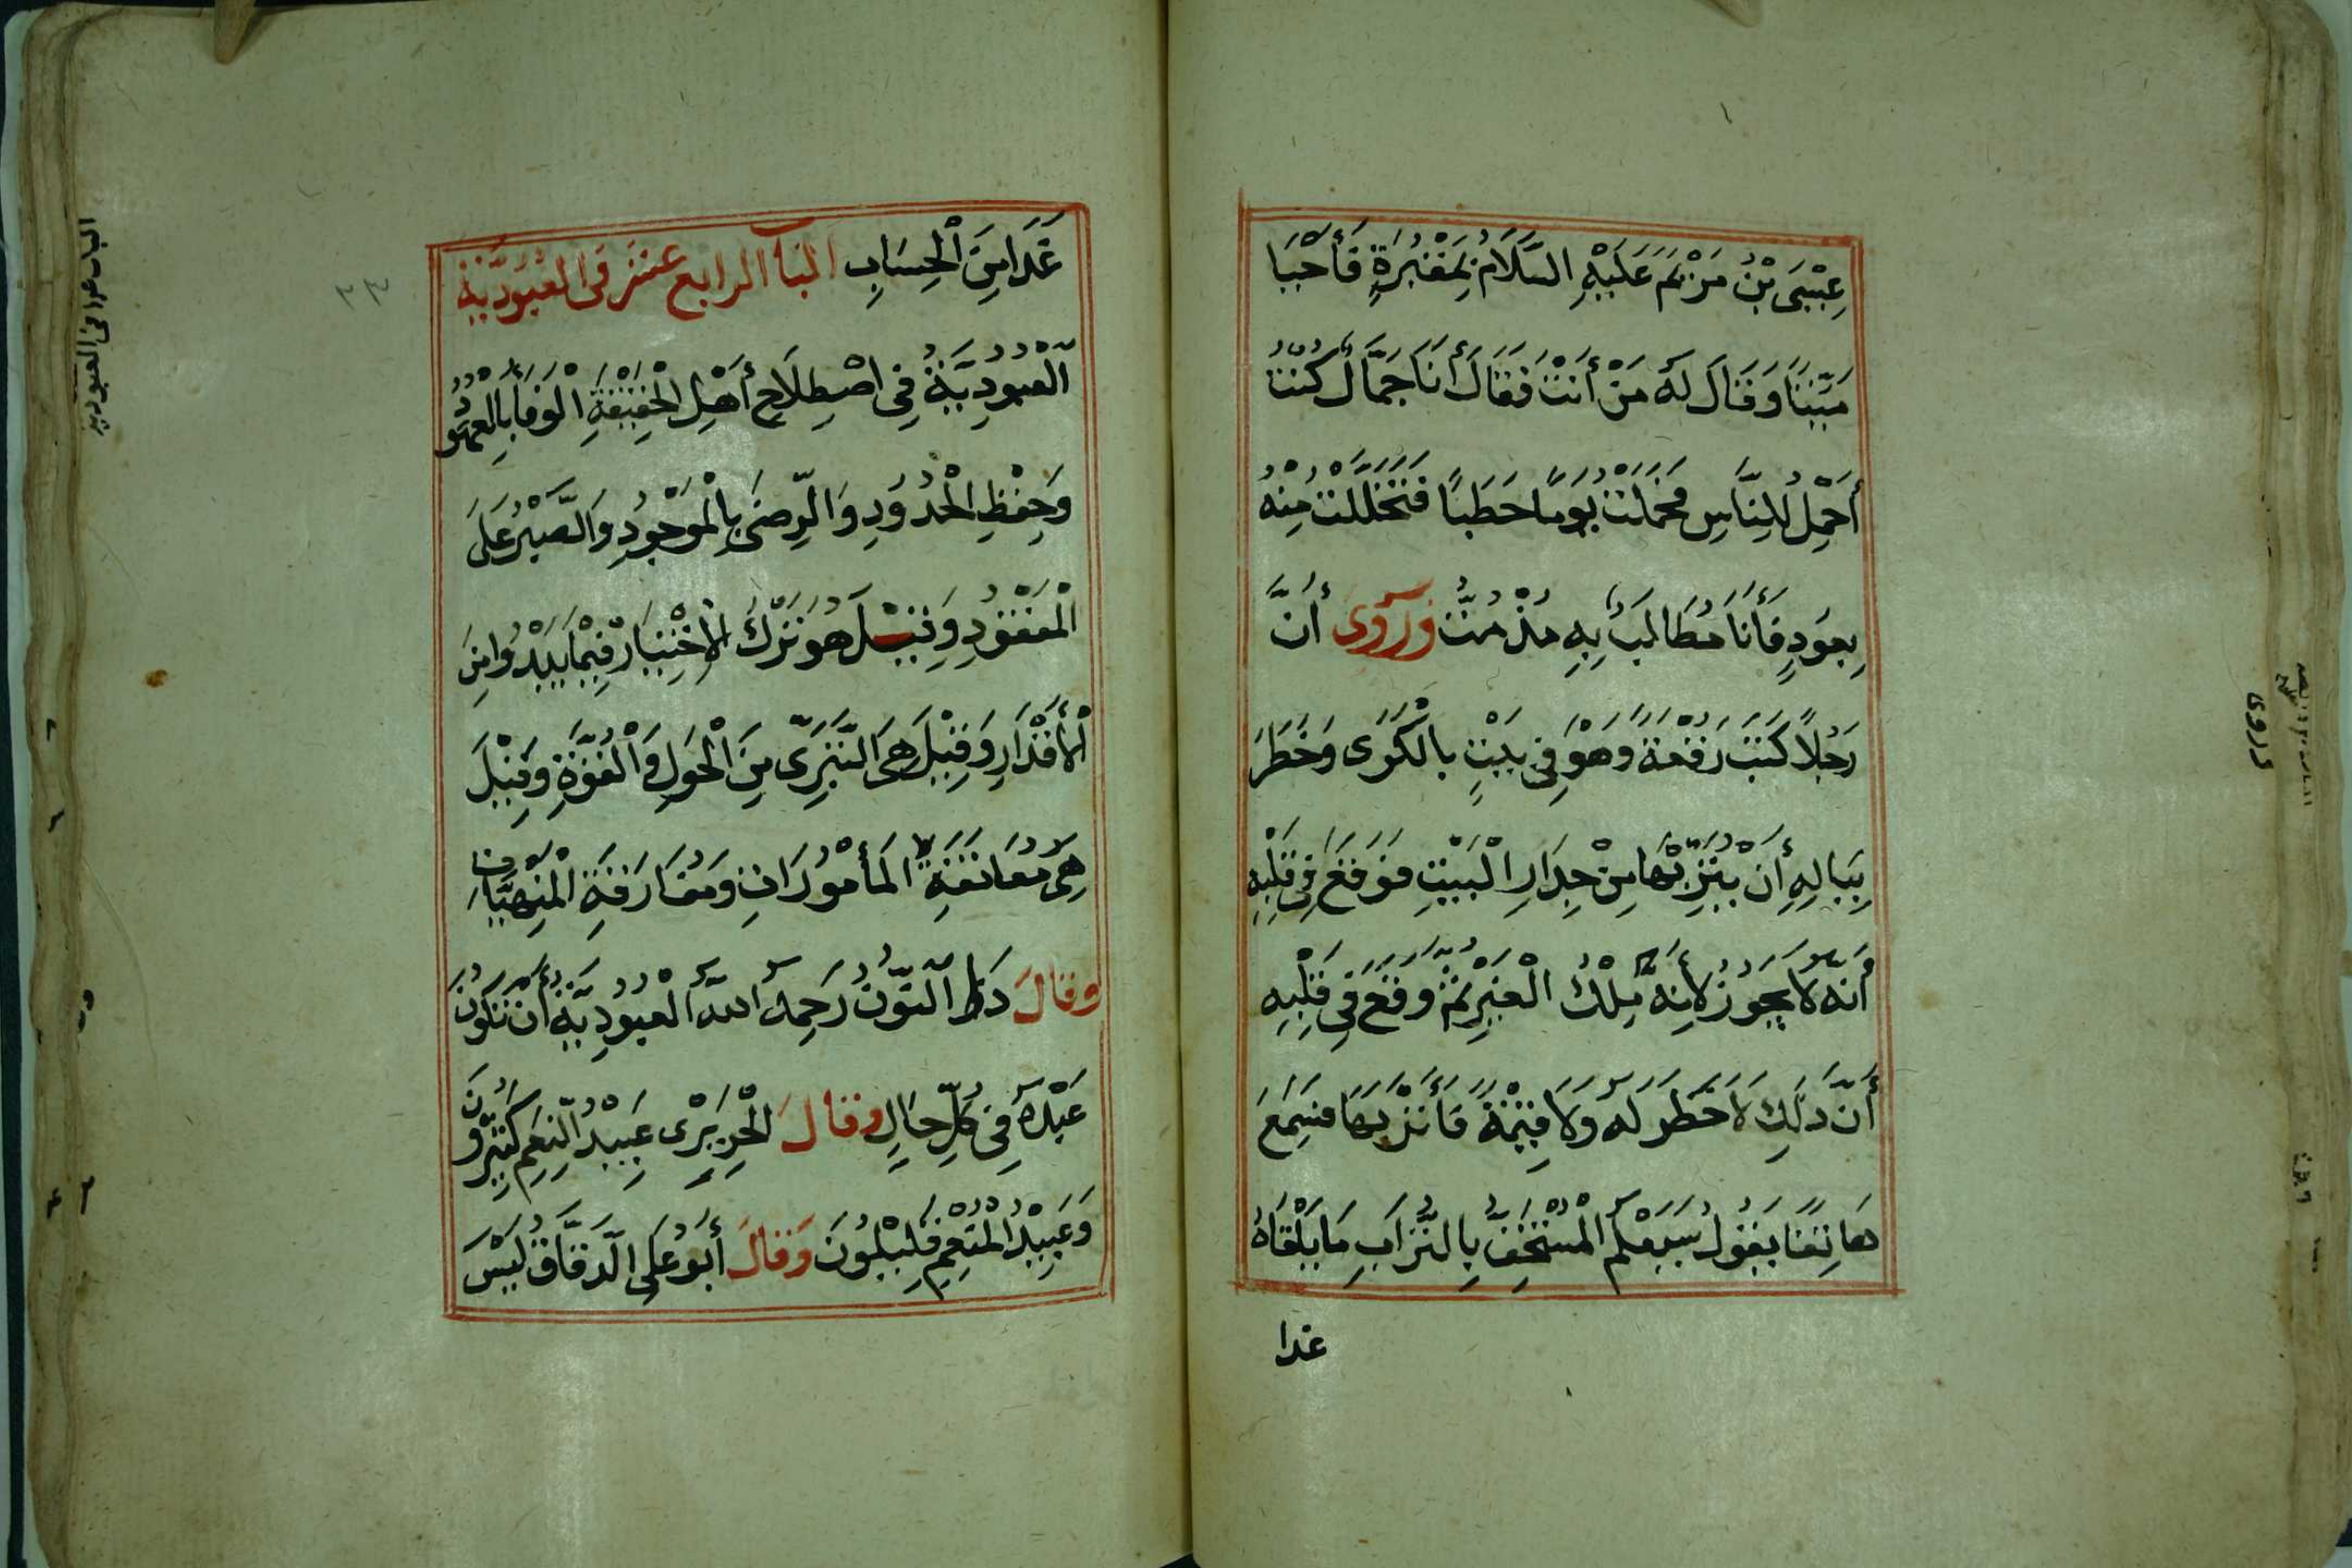 عِيْسَى بْنُ مَرْيَمَ عَلَيْهِ السَّلَامُ بِمَقْبُرَةٍ فَأَحْيَا
مَيِّتًا وَقَالَ لَهُ مَنْ أَنْتَ فَقَالَ أَنَا جَمَّالٌ كُنْتُ
أَحْمِلُ لِلنَّاسِ فَحَمَلْتُ يَوْمًا حَطَبًا فَتَخَلَّلْتُ مِنْهُ
بِعُودٍ فَأَنَا مُطَالَبٌ بِهِ مُذْ مِتُّ وَرُوِىَ أَنَّ
رَجُلًا كَتَبَ رُقْعَةً وَهُوَ فِى بَيْتٍ بِالْكِرَى وَخَطَرَ
بِبَالِهِ أَنْ يُتَرِّبَهَا مِنْ جِدَارِ الْبَيْتِ فَوَقَعَ فِى قَلْبِهِ
أَنَّهُ لَا يَجُوزُ لِأَنَّهُ مِلْكُ الْغَيْرِ ثُمَّ وَقَعَ فِى قَلْبِهِ
أَنَّ ذَلِكَ لَا خَطَرَ لَهُ وَلَا قِيْمَةً فَأَتْرَبَهَا فَسَمِعَ
هَاتِفًا يَقُولُ سَيَعْلَمُ الْمُسْتَخِفُّ بِالتُّرَابِ مَا يَلْقَاهُ
غدا
غَدًا مِنَ الْحِسَابِ الباب الرابع عشر فى العُبُودِيَّةِ
الْعُبُودِيَّةُ فِى اصْطِلَاحِ أَهْلِ الْحَقِيْقَةِ الْوَفَاءُ بِالْعُهُودِ
وَحِفْظِ الْحُدُودِ وَالرِّضَى بِالْمَوْجُودِ وَالصَّبْرُ عَلَى
الْمَفْقُودِ وَقِيْلَ هُوَ تَرْكُ الْاخْتِيَارِ فِيْمَا يَبْدُوا مِنَ
الْأَقْدَارِ وَقِيْلَ هِىَ التَّبَرِّى مِنَ الْحَوْلِ وَالْقُوَّةِ وَقِيْلَ
هِىَ مُعَانَقَةُ الْمَأْمُورَاتِ وَمُفَارَقَةِ الْمَنْهِيَّاتِ
وقالَ ذُو النُّونِ رَحِمَهُ اللهُ الْعُبُودِيَّةُ أَنْ تَكُونَ
عَبْدَهُ فِى كُلِّ حَالٍ وقالَ الْجُرِيْرِى عَبِيْدُ النِّعَمِ كَثِيْرُونَ
وَعَبِيْدُ الْمُنْعِمِ قَلِيْلُونَ وَقَالَ أَبُو عَلِى الدَّقَّاقُ لَيْسَ